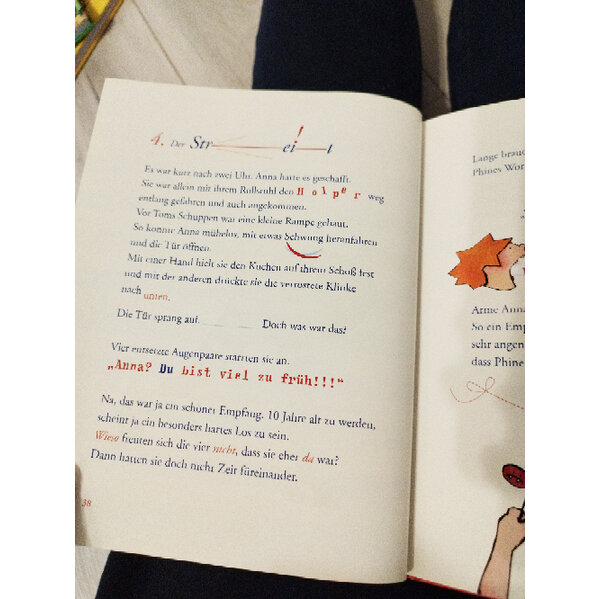 4. Der Streit
Es war kurz nach zwei Uhr. Anna hatte es geschafft.
Sie war allein mit ihrem Rollstuhl den Holper weg
entlang gefahren und auch angekommen.
Vor Toms Schuppen war eine kleine Rampe gebaut.
So konnte Anna mühelos, mit etwas Schwung heranfahren
und die Tür öffnen.
Mit einer Hand hielt sie den Kuchen auf ihrem Schoß fest
und mit der anderen drückte sie die verrostete Klinke
nach unten.
Die Tür sprang auf. Doch was war das?
Vier entsetzte Augenpaare starrten sie an.
„Anna? Du bist viel zu früh!!!“
Na, das war ja ein schöner Empfang. 10 Jahre alt zu werden,
scheint ja ein besonders hartes Los zu sein.
Wieso freuten sich die vier nicht, dass sie eher da war?
Dann hatten sie doch mehr Zeit füreinander.
38
Lange brauc
Phines Wor
Arme Anna
So ein Emp
sehr angen
dass Phine